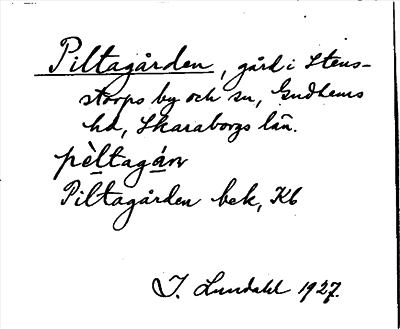 Piltagården, gård i Stens-
torps by och sn, Gudhems
hd, Skaraborgs län.
pèltagán
Piltagården bek, Kb
I. Lundahl 1927.